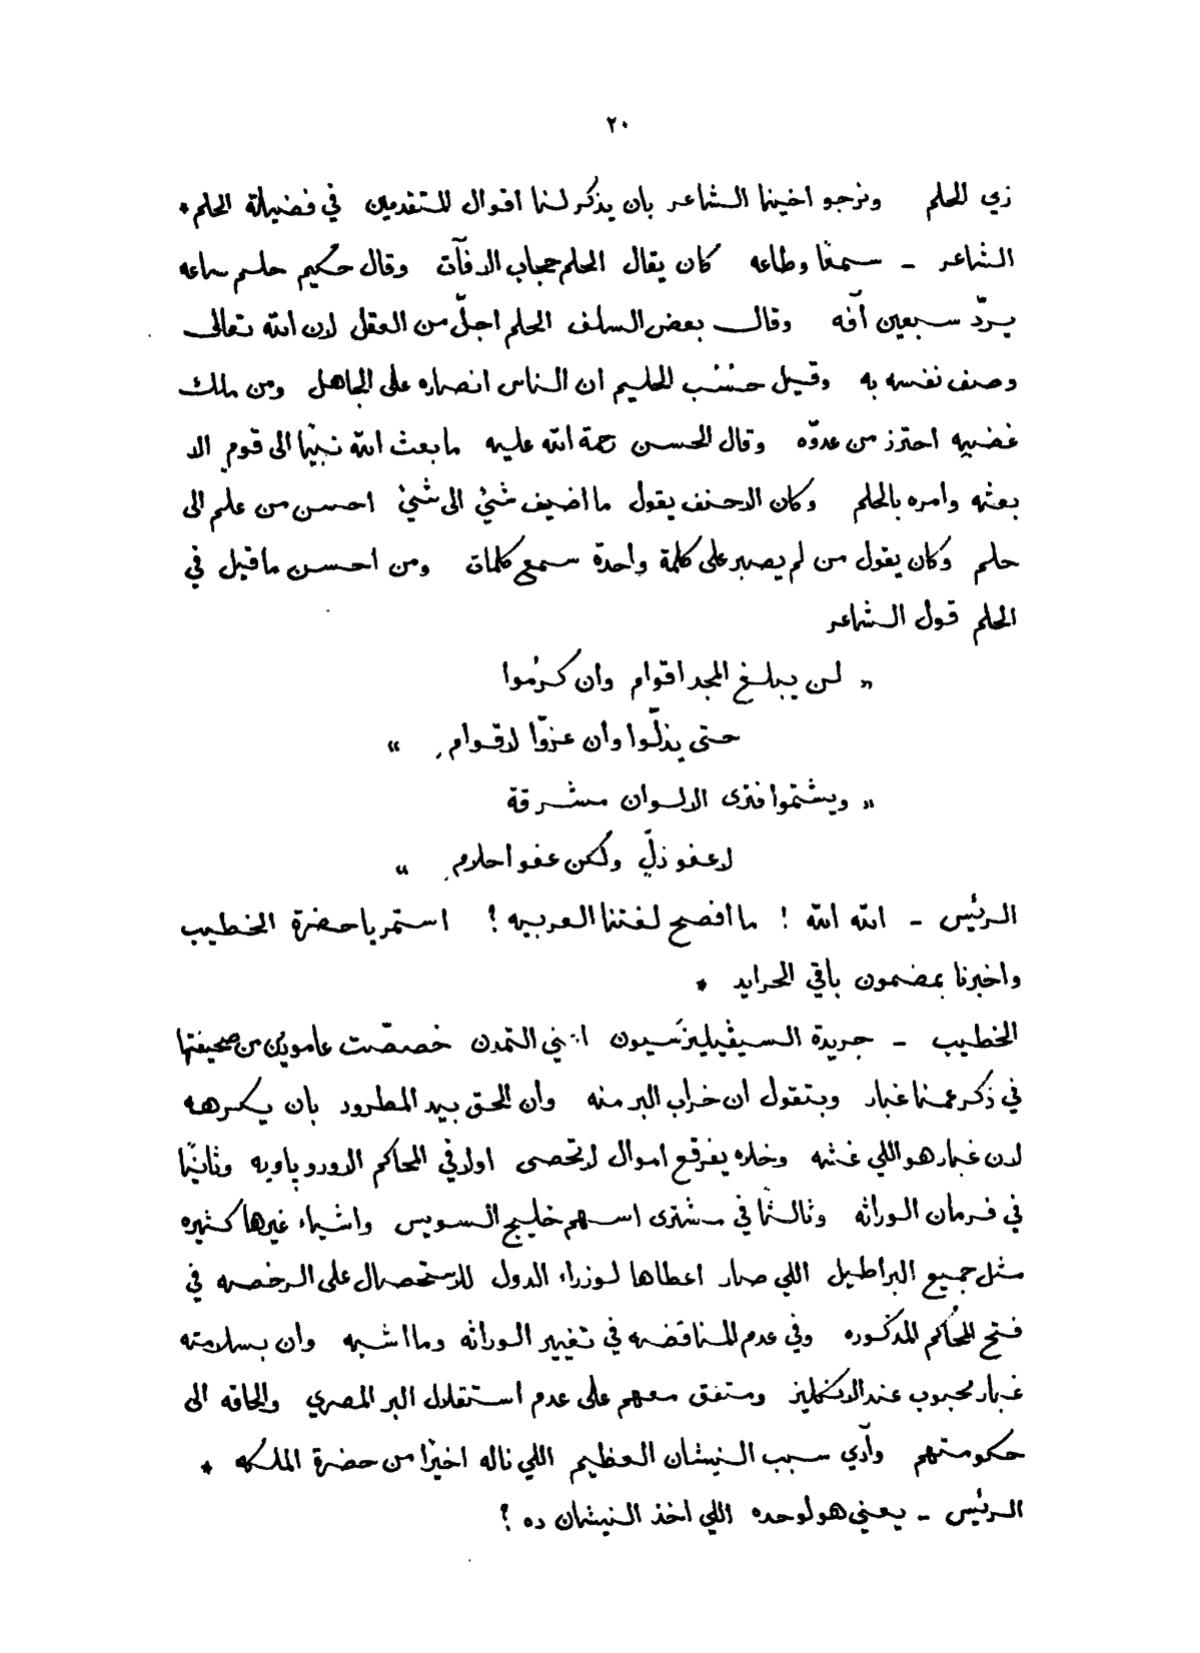 ٢٠
زي الحلم ونرجو اخينا الشاعر بان يذكر لنا اقوال المتقدمين في فضيلة الحلم *
الشاعر - سمعًا وطاعه كان يقال الحلم حجاب الافآت وقال حكيم حلم ساعه
يردّ سبعين آفه وقال بعض السلف الحلم اجلّ من العقل لان الله تعالى
وصف نفسه به وقيل حسْب الحليم ان الناس انصاره على الجاهل ومن ملك
غضبه احترز من عدوّه وقال الحسن رحمة الله عليه ما بعث الله نبيّا الى قومٍ الا
بعثه وامره بالحلم وكان الاحنف يقول ما اضيف شيْ الى شيْ احسن من علم الى
حلم وكان يقول من لم يصبر على كلمة واحدة سمع كلمات ومن احسن ما قيل في
الحلم قول الشاعر
» لن يبلغ المجد اقوام وان كرُموا
حتى يذلّوا وان عزّوا لاقوامٍ «
» ويشتموا فترى الالوان مشرقة
لا عفو ذلّ ولكن عفو احلامٍ «
الرئيس - الله الله ! ما افصح لغتنا العربيه ؟ استمر يا حضرة الخطيب
واخبرنا بمضمون باقي الجرايد *
الخطيب - جريدة السيڤيليزسيون اعني التمدن خصصّت عاموين من صحيفتها
في ذكر عمنا غبار وبتقول ان خراب البر منه وان الحق بيد المطرود بان يكرهه
لان غبار هو اللي غشه وخلاه يفرقع اموال لا تحصى اولا في المحاكم الاوروپاويه وثانيًا
في فرمان الوراثه وثالثًا في مشترى اسهم خليج السويس واشياء غيرها كثيره
مثل جميع البراطيل اللي صار اعطاها لوزراء الدول للاستحصال على الرخصه في
فتح المحاكم المذكوره وفي عدم المناقضه في تغيير الوراثه وما اشبه وان بسلامته
غبار محبوب عند الانكليز ومتفق معهم على عدم استقلال البر المصري والحاقه الى
حكومتهم وآدي سبب النيشان العظيم اللي ناله اخيرًا من حضرة الملكه *
الرئيس - يعني هو لوحده اللي اخذ النيشان ده ؟